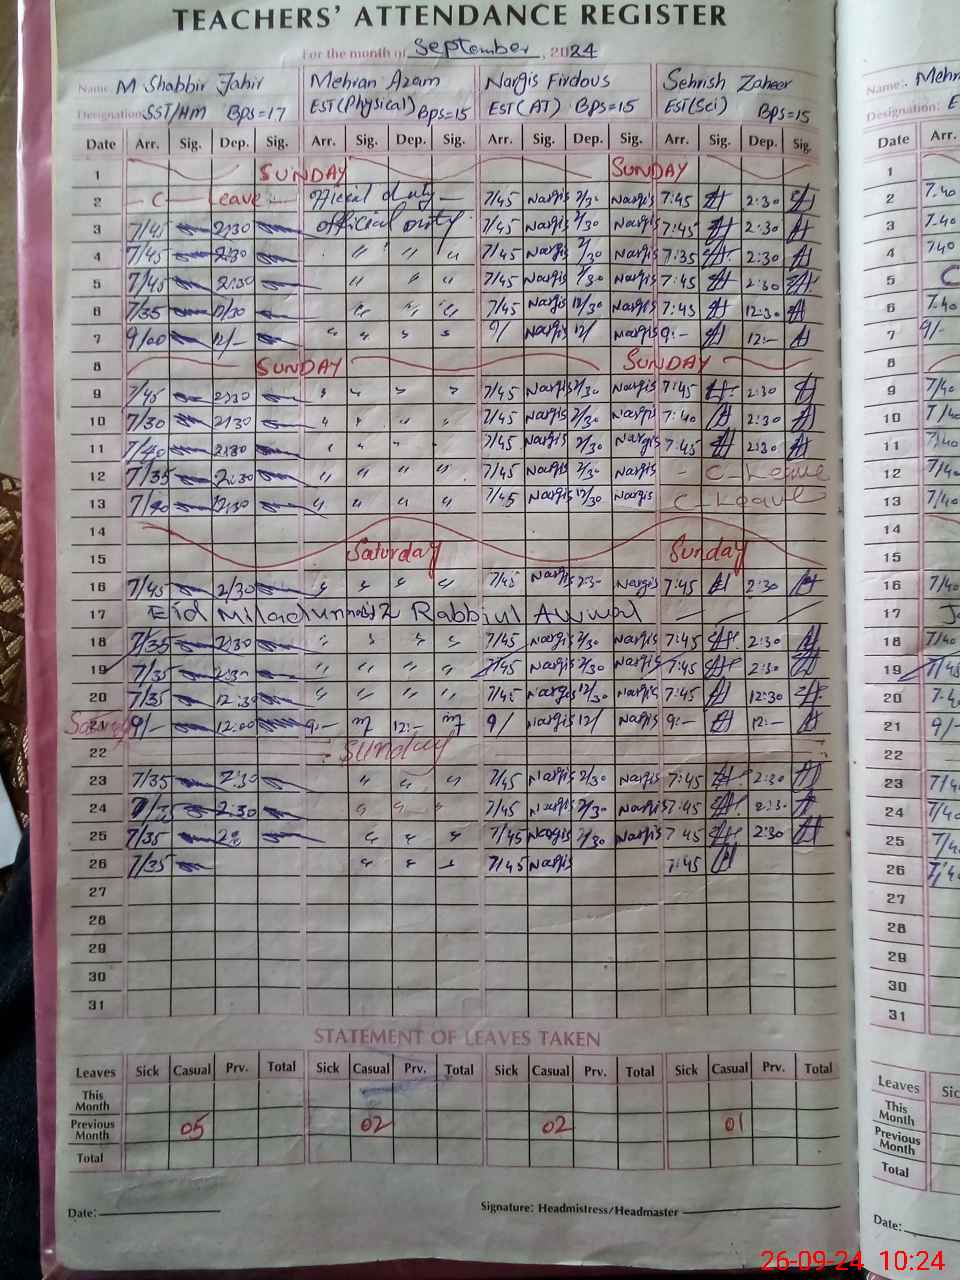 TEACHERS' ATTENDANCE REGISTER
For the month of September, 2024
Name: M Shabbir Tahir Mehran Azam Nargis Firdous Sehrish Zaheer
Designation: SST/HM BPS=17 EST(Physical) BPS=15 EST(AT) BPS=15 EST(Sci) BPS=15
Date Arr. Sig. Dep. Sig. Arr. Sig. Dep. Sig. Arr. Sig. Dep. Sig. Arr. Sig. Dep. Sig.
1 SUNDAY SUNDAY
2 C- Leave official duty 7/45 Nargis 2/30 Nargis 7:45 2:30
3 7/45 2:30 official duty 7/45 Nargis 2/30 Nargis 7:45 2:30
4 7/45 2:30 " " " 7/45 Nargis 2/30 Nargis 7:35 2:30
5 7/45 2:30 " " " 7/45 Nargis 2/30 Nargis 7:45 2:30
6 7/35 12/30 " " " 7/45 Nargis 12/30 Nargis 7:45 12:30
7 9/00 12/- " " " " 9/ Nargis 12/ Nargis 9:- 12:-
8 SUNDAY SUNDAY
9 7/45 2:30 " " " " 7/45 Nargis 2/30 Nargis 7:45 2:30
10 7/30 2:30 " " " " 7/45 Nargis 2/30 Nargis 7:40 2:30
11 7/40 2:30 " " " " 7/45 Nargis 2/30 Nargis 7:45 2:30
12 7/35 2:30 " " " " 7/45 Nargis 2/30 Nargis - C-Leave
13 7/40 12:30 " " " " 7/45 Nargis 12/30 Nargis C-Leave
14
15 Saturday Sunday
16 7/45 2/30 " " " " 7/45 Nargis 2:30 Nargis 7:45 2:30
17 Eid Miladunnabi 12 Rabbiul Awwal
18 7/35 2:30 " " " " 7/45 Nargis 2/30 Nargis 7:45 2:30
19 7/35 2:30 " " " " 7/45 Nargis 2/30 Nargis 7:45 2:30
20 7/35 12:30 " " " " 7/45 Nargis 12/30 Nargis 7:45 12:30
21 9/- 12:00 9:- 12:- 9/ Nargis 12/ Nargis 9:- 12:-
22 SUNDAY
23 7/35 2:30 " " " 7/45 Nargis 2/30 Nargis 7:45 2:30
24 2:30 " " " 7/45 Nargis 2/30 Nargis 7:45 2:30
25 7/35 " " " 7/45 Nargis 2/30 Nargis 7:45 2:30
26 7/35 " " " 7/45 Nargis 7:45
27
28
29
30
31
STATEMENT OF LEAVES TAKEN
Leaves Sick Casual Prv. Total Sick Casual Prv. Total Sick Casual Prv. Total Sick Casual Prv. Total
This Month
Previous Month 05 02 02 01
Total
Date: Signature: Headmistress/Headmaster
Name:. Mehr
Designation: E
Date Arr.
1
2 7.40
3 7.40
4 7.40
5 C
6 7.40
7 9/-
8
9 7/40
10 7/40
11 7/40
12 7/40
13 7/40
14
15
16 7/40
17
18 7/40
19 7/45
20
21 9/-
22
23
24
25
26
27
28
29
30
31
Leaves Sic
This Month
Previous Month
Total
Date:
26-09-24 10:24